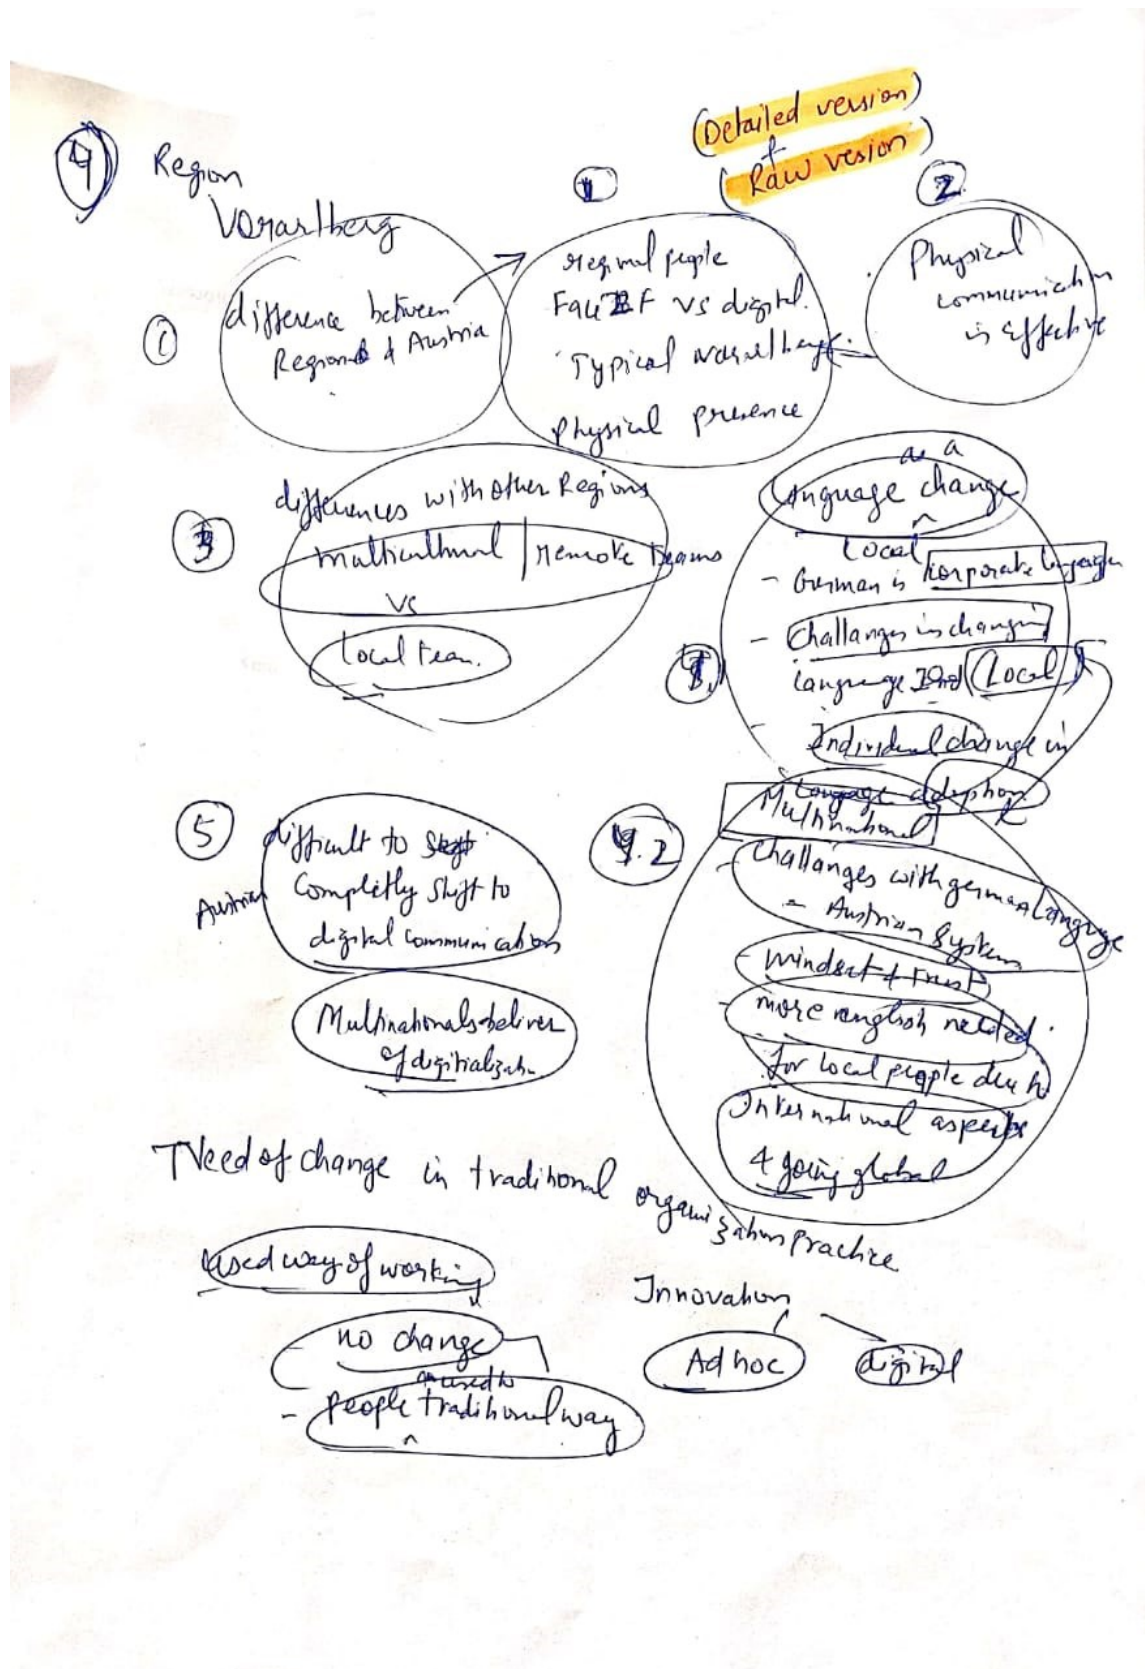 (Detailed version)
+
(Raw vesion)
4 Region
Vorarlberg
1
2
1
difference between
Regional & Austria
regional people
Face 2 F vs digital.
Typical vorarlberg.
physical presence
Physical
communication
is effective
3
differences with other Regions
multicultural / remote teams
vs
Local team.
as a
Language change
Local
- German is korporate language
4.
- Challanges in changing
language Local
- Individual change in
Language adaption
5
Austrian
difficult to
completly shift to
digital communication
Multinationals believer
of digitialization
4.2
Multinational
- Challanges with german language
- Austrian System
- mindset & trust
- more english needed.
for local people
International aspects
& going global
Need of change in traditional organizations practice
used way of working
- no change
are used to
- people traditional way
Innovation
Ad hoc
digital